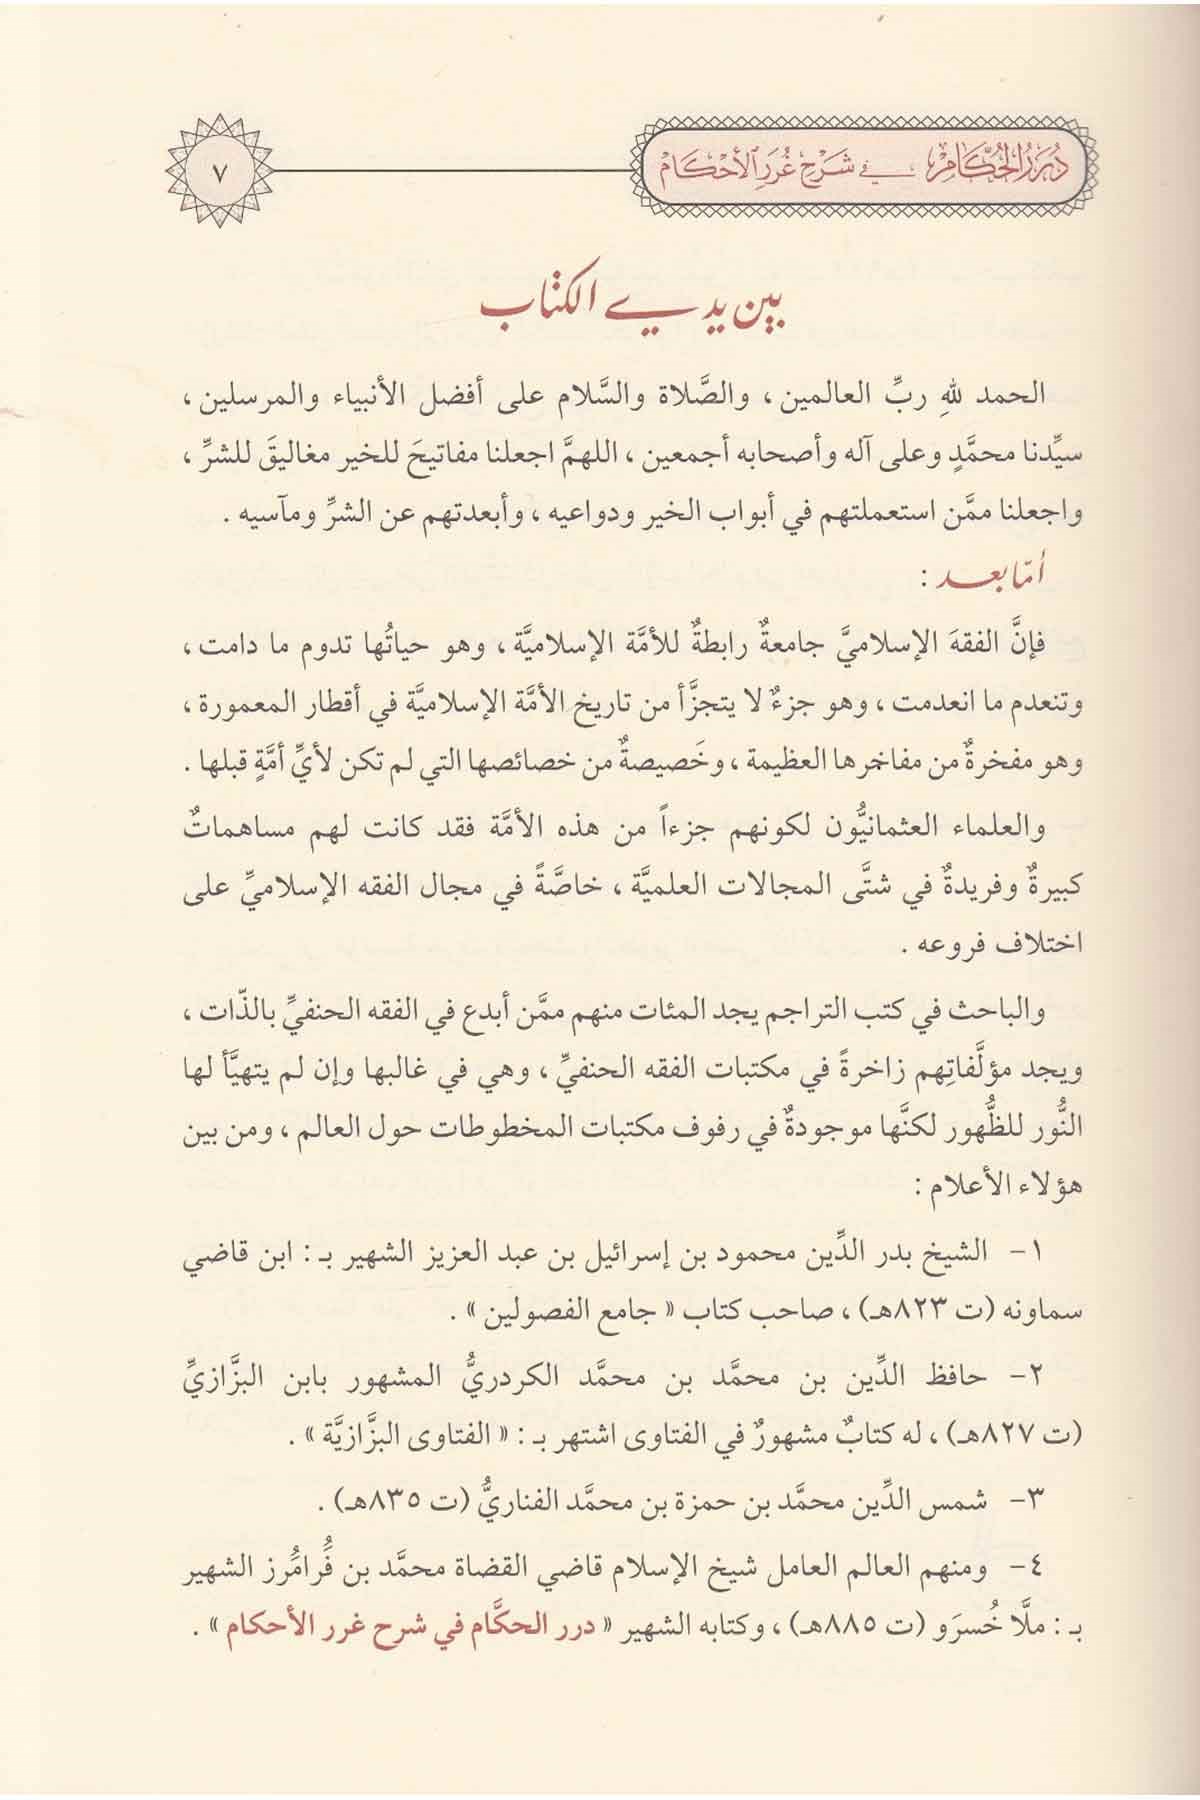 دُرَرُ الحُكَّامِ في شَرْحِ غُرَرِ الأَحْكَام
٧
بين يدي الكتاب
الحمد للهِ ربِّ العالمين ، والصَّلاة والسَّلام على أفضل الأنبياء والمرسلين ،
سيِّدنا محمَّدٍ وعلى آله وأصحابه أجمعين ، اللهمَّ اجعلنا مفاتيحَ للخير مغاليقَ للشرِّ ،
واجعلنا ممَّن استعملتهم في أبواب الخير ودواعيه ، وأبعدتهم عن الشرِّ ومآسيه .
أمّا بعد :
فإنَّ الفقهَ الإسلاميَّ جامعةٌ رابطةٌ للأمَّة الإسلاميَّة ، وهو حياتُها تدوم ما دامت ،
وتنعدم ما انعدمت ، وهو جزءٌ لا يتجزَّأ من تاريخ الأمَّة الإسلاميَّة في أقطار المعمورة ،
وهو مفخرةٌ من مفاخرها العظيمة ، وخَصيصةٌ من خصائصها التي لم تكن لأيِّ أمَّةٍ قبلها .
والعلماء العثمانيُّون لكونهم جزءاً من هذه الأمَّة فقد كانت لهم مساهماتٌ
كبيرةٌ وفريدةٌ في شتَّى المجالات العلميَّة ، خاصَّةً في مجال الفقه الإسلاميِّ على
اختلاف فروعه .
والباحث في كتب التراجم يجد المئات منهم ممَّن أبدع في الفقه الحنفيِّ بالذّات ،
ويجد مؤلَّفاتِهم زاخرةً في مكتبات الفقه الحنفيِّ ، وهي في غالبها وإن لم يتهيَّأ لها
النُّور للظُّهور لكنَّها موجودةٌ في رفوف مكتبات المخطوطات حول العالم ، ومن بين
هؤلاء الأعلام :
١- الشيخ بدر الدِّين محمود بن إسرائيل بن عبد العزيز الشهير بـ : ابن قاضي
سماونه (ت ٨٢٣هـ) ، صاحب كتاب « جامع الفصولين » .
٢- حافظ الدِّين بن محمَّد بن محمَّد الكردريُّ المشهور بابن البزَّازيِّ
(ت ٨٢٧هـ) ، له كتابٌ مشهورٌ في الفتاوى اشتهر بـ : « الفتاوى البزَّازيَّة » .
٣- شمس الدِّين محمَّد بن حمزة بن محمَّد الفناريُّ (ت ٨٣٥هـ) .
٤- ومنهم العالم العامل شيخ الإسلام قاضي القضاة محمَّد بن فُرامُرز الشهير
بـ : ملَّا خُسرَو (ت ٨٨٥هـ) ، وكتابه الشهير « درر الحكَّام في شرح غرر الأحكام » .